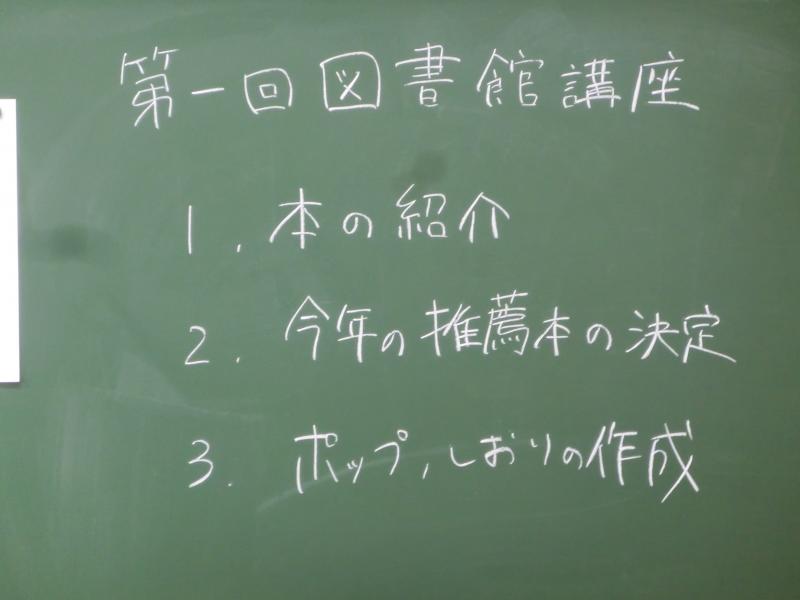 第一回図書館講座
1. 本の紹介
2. 今年の推薦本の決定
3. ポップ,しおりの作成